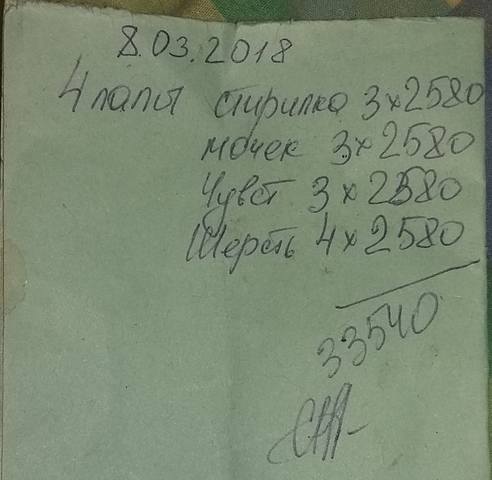 8.03.2018
4 лапы стирилка 3×2580
мочек 3×2580
Чувст 3×2580
Шерсть 4×2580
33540